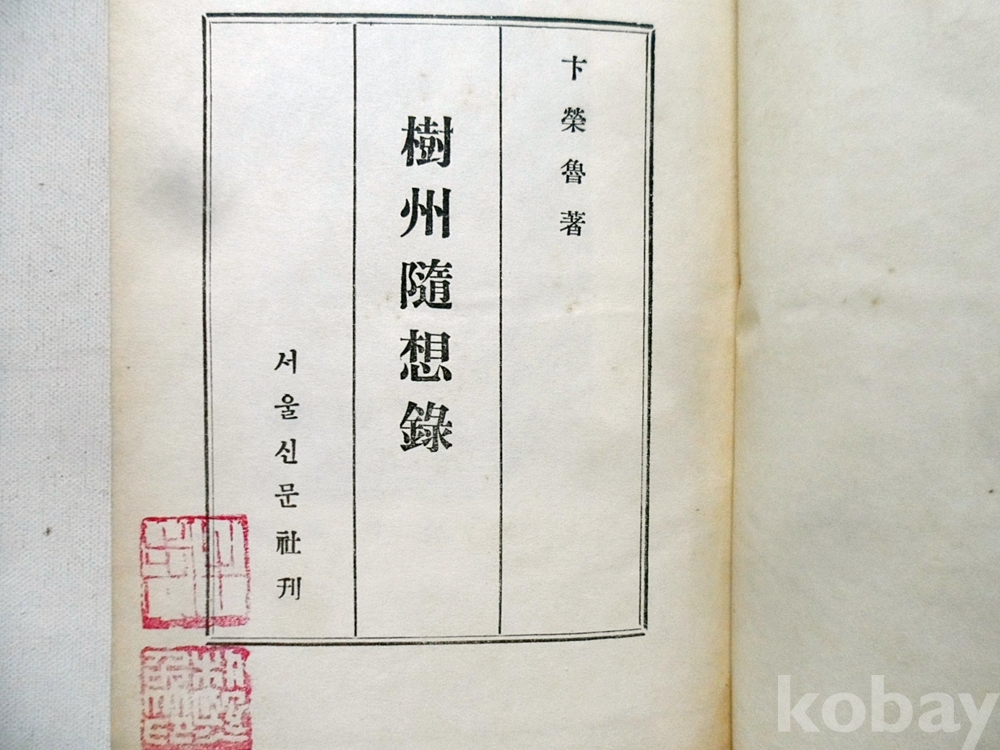 卞榮魯著
樹州隨想錄
서울신문社刊
kobay